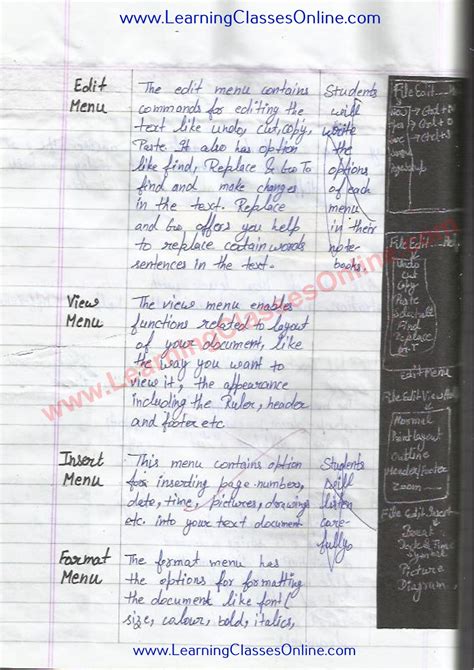 www.LearningClassesOnline.com
Edit Menu
The edit menu contains
commands for editing the
text like undo, cut, copy,
Paste It also has option
like find, Replace & Go To
find and make changes
in the text. Replace
and Go, offers you help
to replace certain words
sentences in the text.
Students
will
write
the
options
of each
menu
in their
note-
books.
File Edit
Ctrl+O
Ctrl+S
File Edit
Undo
Cut
Copy
Paste
Select all
Find
Replace
Edit Menu
View Menu
The view menu enables
functions related to layout
of your document, like
the way you want to
view it, the appearance
including the Ruler, header
and footer etc
File Edit View
Normal
Print layout
Outline
Header/Footer
Zoom
Insert Menu
This menu contains option
for inserting page-numbers,
date, time, pictures, drawings
etc. into your text document
Students
will
listen
care-
fully
File Edit Insert
Break
Picture
Diagram
Format Menu
The format menu has
the options for formatting
the document like font
size, colour, bold, italics,
www.LearningClassesOnline.com
www.LearningClassesOnline.com